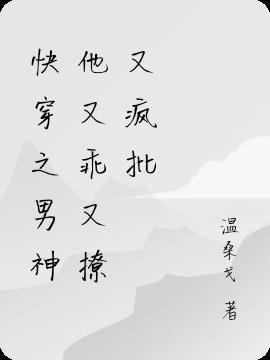 快穿之男神
他又乖又撩
又疯批
温桑戈 著